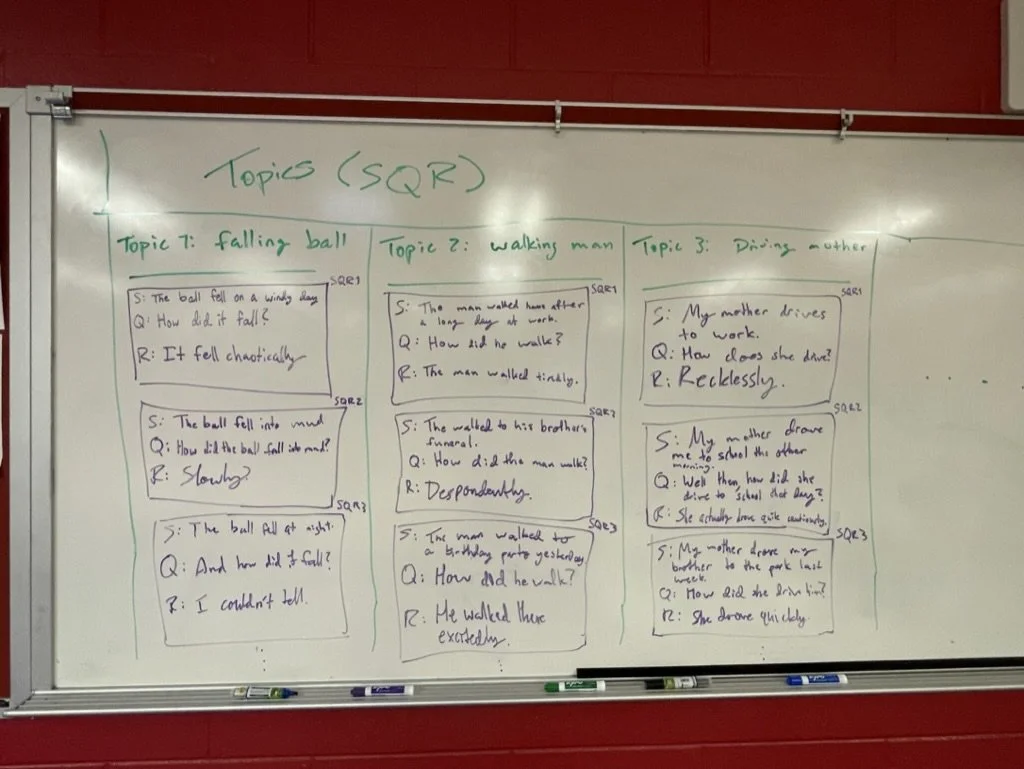 Topics (SQR)
Topic 1: falling ball
SQR1
S: The ball fell on a windy day
Q: How did it fall?
R: It fell chaotically
SQR2
S: The ball fell into mud
Q: How did the ball fall into mud?
R: Slowly?
SQR3
S: The ball fell at night.
Q: And how did it fall?
R: I couldn't tell.
Topic 2: walking man
SQR1
S: The man walked home after
a long day at work.
Q: How did he walk?
R: The man walked tiredly.
SQR2
S: The walked to his brother's
funeral.
Q: How did the man walk?
R: Despondently.
SQR3
S: The man walked to
a birthday party yesterday
Q: How did he walk?
R: He walked there
excitedly.
Topic 3: Driving mother
SQR1
S: My mother drives
to work.
Q: How does she drive?
R: Recklessly.
SQR2
S: My mother drove
me to school the other
morning.
Q: Well then, how did she
drive to school that day?
R: She actually drove quite cautiously.
SQR3
S: My mother drove my
brother to the park last
week.
Q: How did she drive him?
R: She drove quickly.